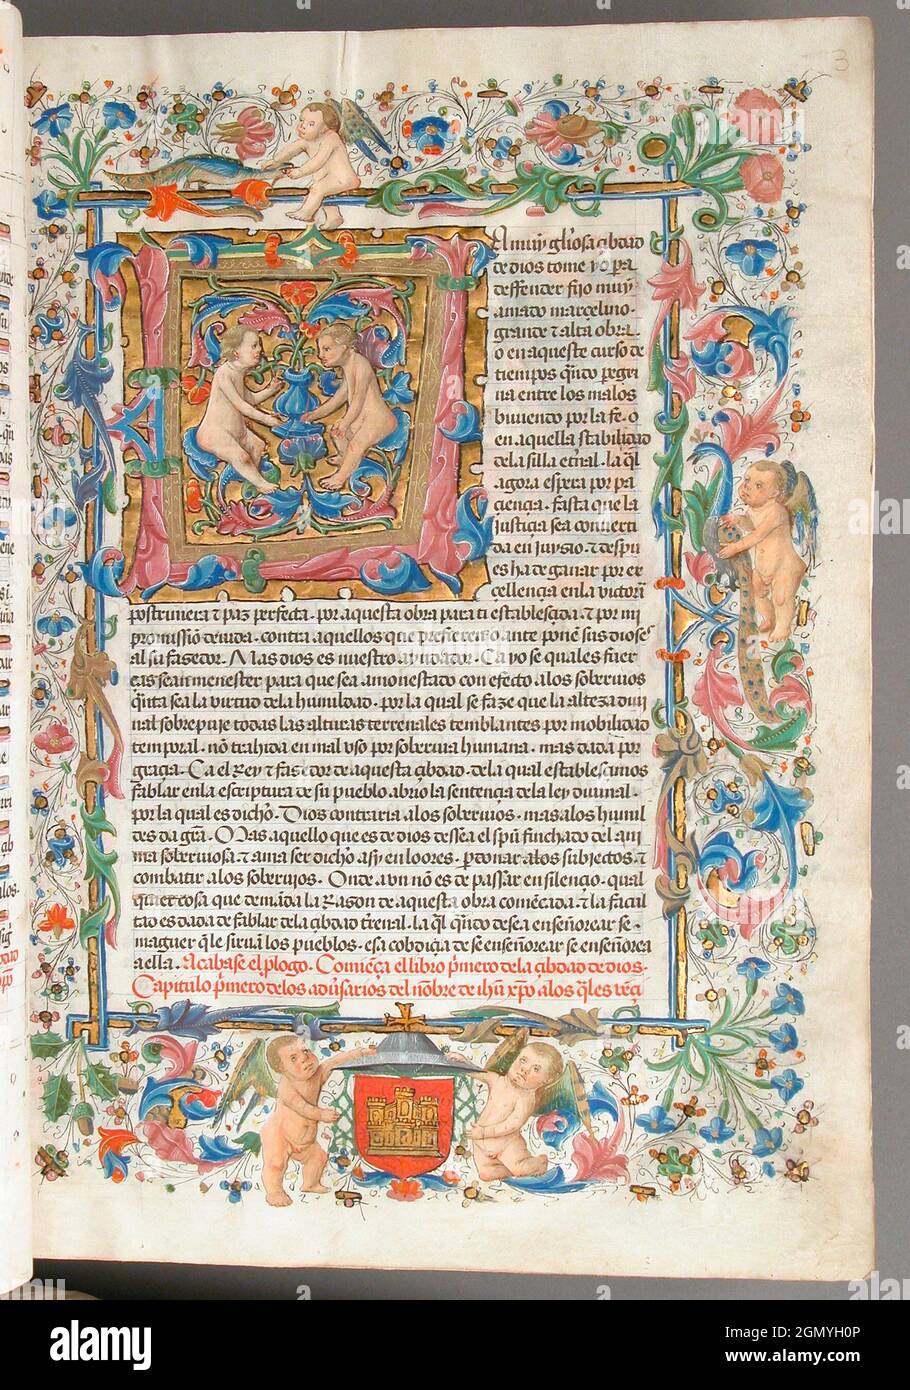 3
A muy gl'iosa çibdad
de dios tome yo pa
deffender fijo muy
amado marcelino.
grande & alta obra
o en aqueste curso de
tiempos q̃ndo pegri
na entre los malos
biuiendo por la fe. o
en aquella stabilidad
de la silla et'nal. la q̃l
agora espera por pa
ciençia. fasta que la
justicia sea conuerti
da en juysio. & despu
es ha de ganar por ex
cellençia en la victoria
postrimera & paz perfecta. por aquesta obra para ti establesçida. & por mi
promissiõ deuida. contra aquellos que prefierẽ ante ponẽ sus dioses
al su fasedor. Mas dios es nuestro ayudador. Ca yo se quales fuer
ças sean menester para que sea amonestado con efecto alos soberuios
q̃nta sea la virtud dela humildad. por la qual se faze que la alteza diui
nal sobrepuje todas las alturas terrenales temblantes por mobilidad
temporal. nõ trahida en mal vso por soberuia humana. mas dada por
graçia. Ca el Rey & fasedor de aquesta çibdad. dela qual establesçimos
fablar enla escriptura de su pueblo abrio la sentençia dela ley diuinal.
por la qual es dicho. Dios contraria alos soberuios. mas alos humil
des da grã. Mas aquello que es de dios dessea el spũ finchado del ani
ma soberuiosa. & ama ser dicho assy en loores. pdonar alos subiectos. &
combatir alos soberuios. Onde avn nõ es de passar en silençio. qual
quier cosa que demãda la Razon de aquesta obra comẽçada. & la facul
tad es dada de fablar dela çibdad t'renal. la q̃l q̃ndo desea enseñorear se.
maguer q̃ le siruã los pueblos. esa cobdiçia de se enseñorear se enseñorea
a ella. Acabase el plogo. Comiẽça el libro p'mero dela çibdad de dios.
Capitulo p'mero delos adũsarios del nõbre de ihũ xp̃o alos q̃les vẽçi
alamy
Image ID: 2GMYH0P
www.alamy.com